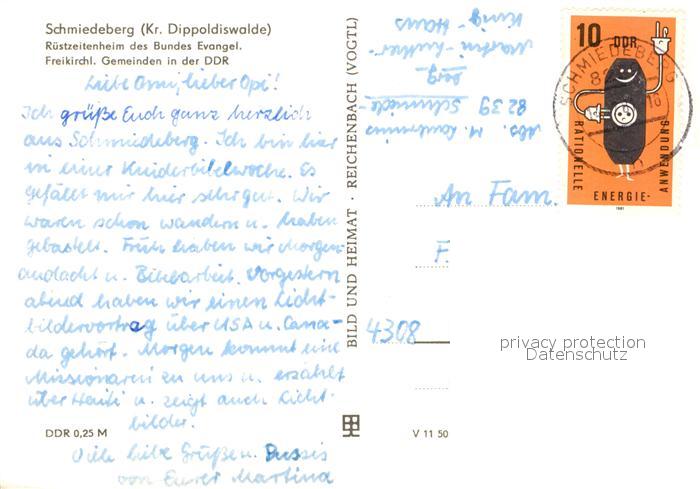 Schmiedeberg (Kr. Dippoldiswalde)
Rüstzeitenheim des Bundes Evangel.
Freikirchl. Gemeinden in der DDR
Liebe Omi, lieber Opi!
Ich grüße Euch ganz herzlich
aus Schmiedeberg. Ich bin hier
in einer Kinderbibelwoche. Es
gefällt mir hier sehr gut. Wir
waren schon wandern u. haben
gebastelt. Früh haben wir Morgen-
andacht u. Bibelarbeit. Vorgestern
abend haben wir einen Licht-
bildervortrag über USA u. Cana-
da gehört. Morgen kommt eine
Missionarin zu uns u. erzählt
über Haiti u. zeigt auch Licht-
bilder.
Viele liebe Grüße u. Bussis
von Eurer Martina
DDR 0,25 M
V 11 50
BILD UND HEIMAT · REICHENBACH (VOGTL)
Abs. M.
8239 Schmiede-
berg
Martin-Luther-
King-Haus
10 DDR
RATIONELLE ENERGIE-
ANWENDUNG
1981
SCHMIEDEBERG
An Fam.
F.
4308
privacy protection
Datenschutz